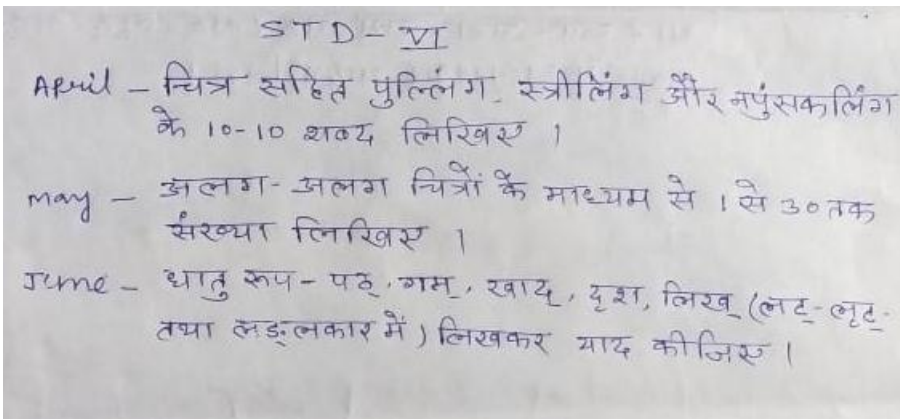 STD-VI
April - चित्र सहित पुल्लिंग, स्त्रीलिंग और नपुंसकलिंग
के 10-10 शब्द लिखिए ।
may - अलग-अलग चित्रों के माध्यम से 1 से 30 तक
संख्या लिखिए ।
June - धातु रूप - पठ्, गम्, खाद्, दृश, लिख् (लट्-लृट्-
तथा लङ्लकार में) लिखकर याद कीजिए ।